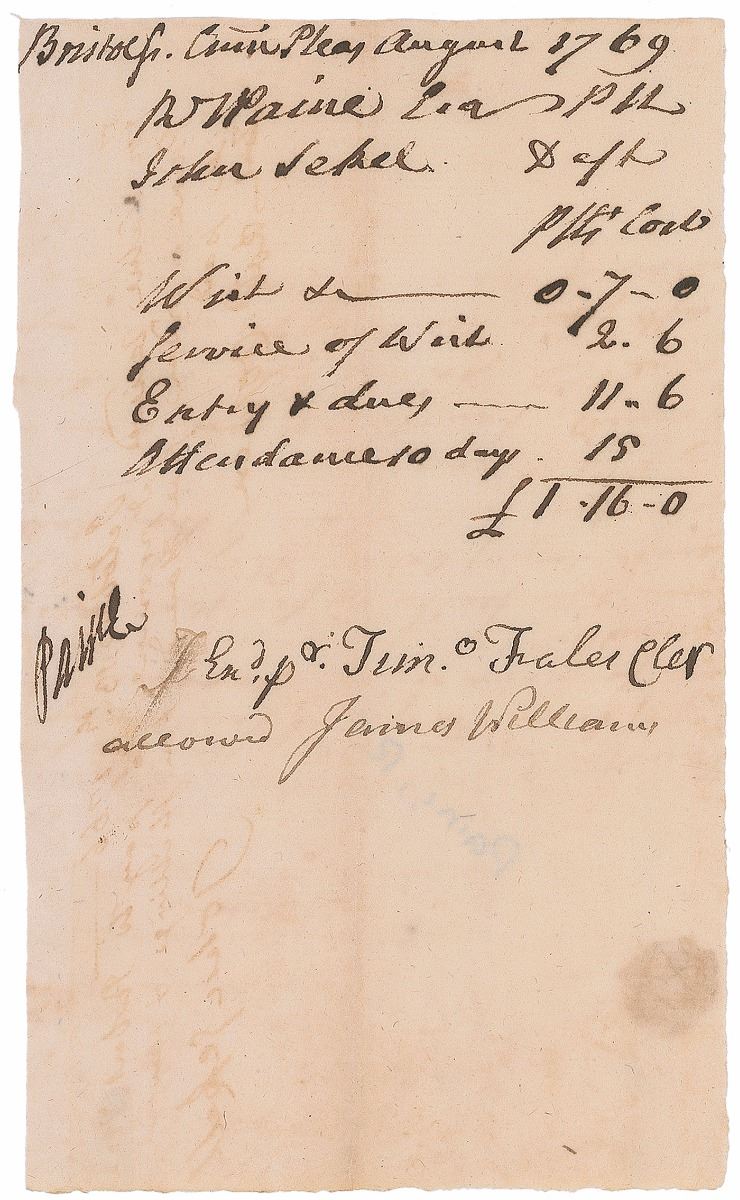 Bristol ss. Com Pleas August 1769
R T Paine Esq Pltt
John Sekel Deft
Pltts Cost
Writ &c 0-7-0
Service of Writ 2-6
Entry & dues 11-6
Attendance 10 days. 15
£1-16-0
Paine
Exd. pr. Tim.o Fales Cler
allowd James Williams